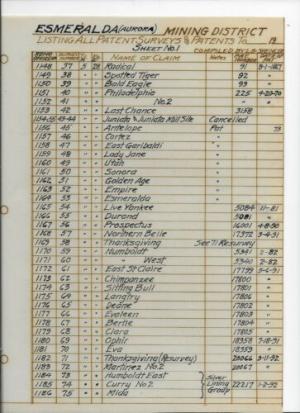 ESMERALDA (AURORA) MINING DISTRICT
LISTING ALL PATENT SURVEYS & PATENTS TO
SHEET No. 1 COMPILED BY
NAME OF CLAIM
1148 37 5 28 Radical 91
1149 38 " " Spotted Tiger 92 "
1150 39 " " Bald Eagle 93 "
1151 40 " " Philadelphia 225 4-20-70
1152 41 " " " No.2 " "
1153 42 " " Last Chance 3158
1154-55 43-44 " " Juniata & Juniata Mill Site Cancelled
1156 45 " " Antelope Pat
1157 46 " " Cortez "
1158 47 " " East Garibaldi "
1159 48 " " Lady Jane "
1160 49 " " Utah "
1161 50 " " Sonora "
1162 51 " " Golden Age "
1163 52 " " Empire "
1164 53 " " Esmeralda "
1165 54 " " Live Yankee 5084 11-81
1166 55 " " Durand 5081 "
1167 56 " " Prospectus 16001 4-8-90
1168 57 " " Northern Belle 17372 3-4-91
1169 58 " " Thanksgiving See 71 Resurvey
1170 59 " " Humboldt 5341 2-82
1171 60 " " " West 5340 2-82
1172 61 " " East St Claire 17799 5-6-91
1173 62 " " Chimpanzee 17800 "
1174 63 " " Sitting Bull 17801 "
1175 64 " " Langtry 17806 "
1176 65 " " Deane 17802 "
1177 66 " " Evaleen 17803 "
1178 67 " " Bertie 17804 "
1179 68 " " Clara 17805 "
1180 69 " " Ophir 18358 7-18-91
1181 70 " " Eva 18359 "
1182 71 " " Thanksgiving (Resurvey) 20066 3-11-92
1183 72 " " Martinez No.2 20167 "
1184 73 " " Humboldt East Silver
1185 74 " " Curry No.2 Lining 22217 1-2-92
1186 75 " " Mida Grady